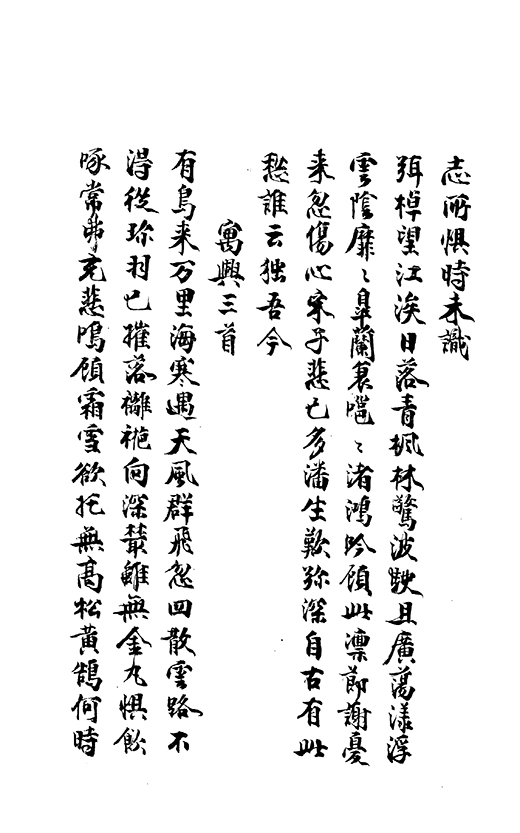 志所惧時未識
弭棹望江涘日落青楓林驚波駛且廣蕩漾浮
雲陰靡〻皋蘭衰噰〻渚鴻吟頋此凛節謝憂
来忽傷心宋子悲已多潘生歎弥深自古有此
愁誰云独吾今
寓興三首
有鳥来万里海寒遇天風群飛忽回散雲路不
得從珎羽已摧落襳褷向深叢雖無金丸惧飲
啄常弗充悲鳴頋霜雪欲托無高松黃鵠何時